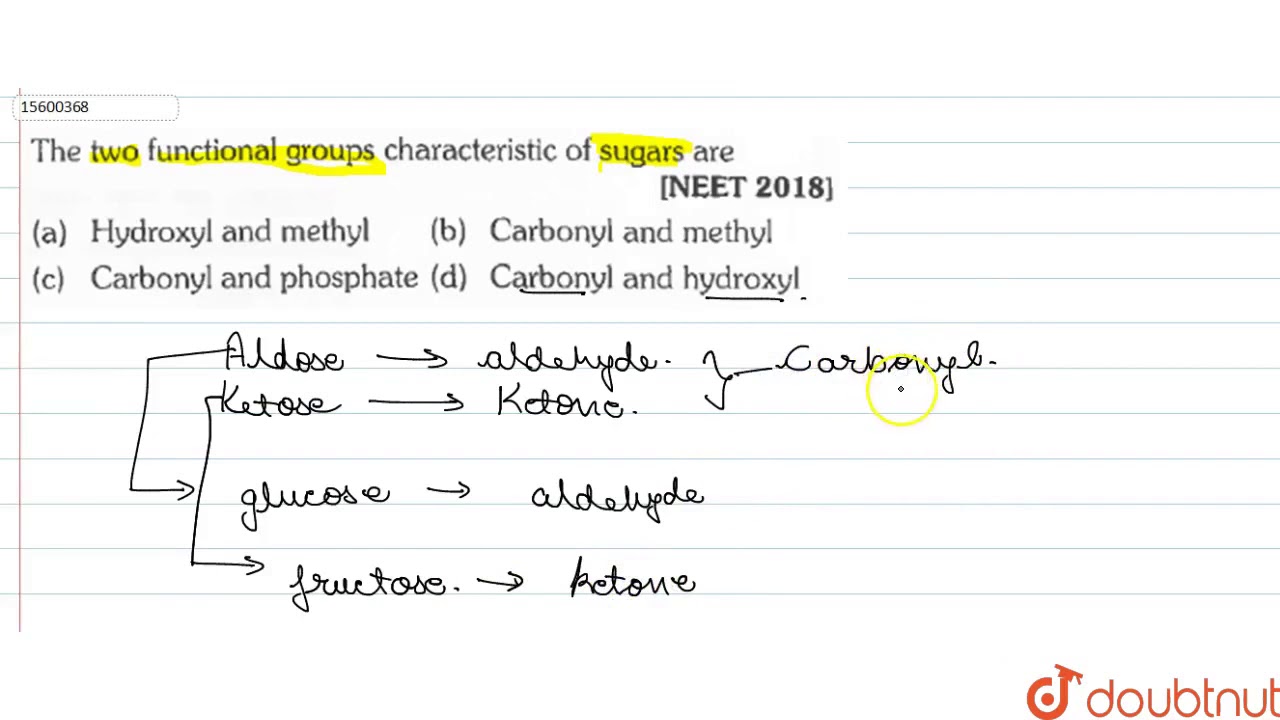 15600368
The two functional groups characteristic of sugars are
[NEET 2018]
(a) Hydroxyl and methyl (b) Carbonyl and methyl
(c) Carbonyl and phosphate (d) Carbonyl and hydroxyl
Aldose → aldehyde. } Carbonyl.
Ketose → Ketone.
glucose → aldehyde
fructose. → ketone
doubtnut